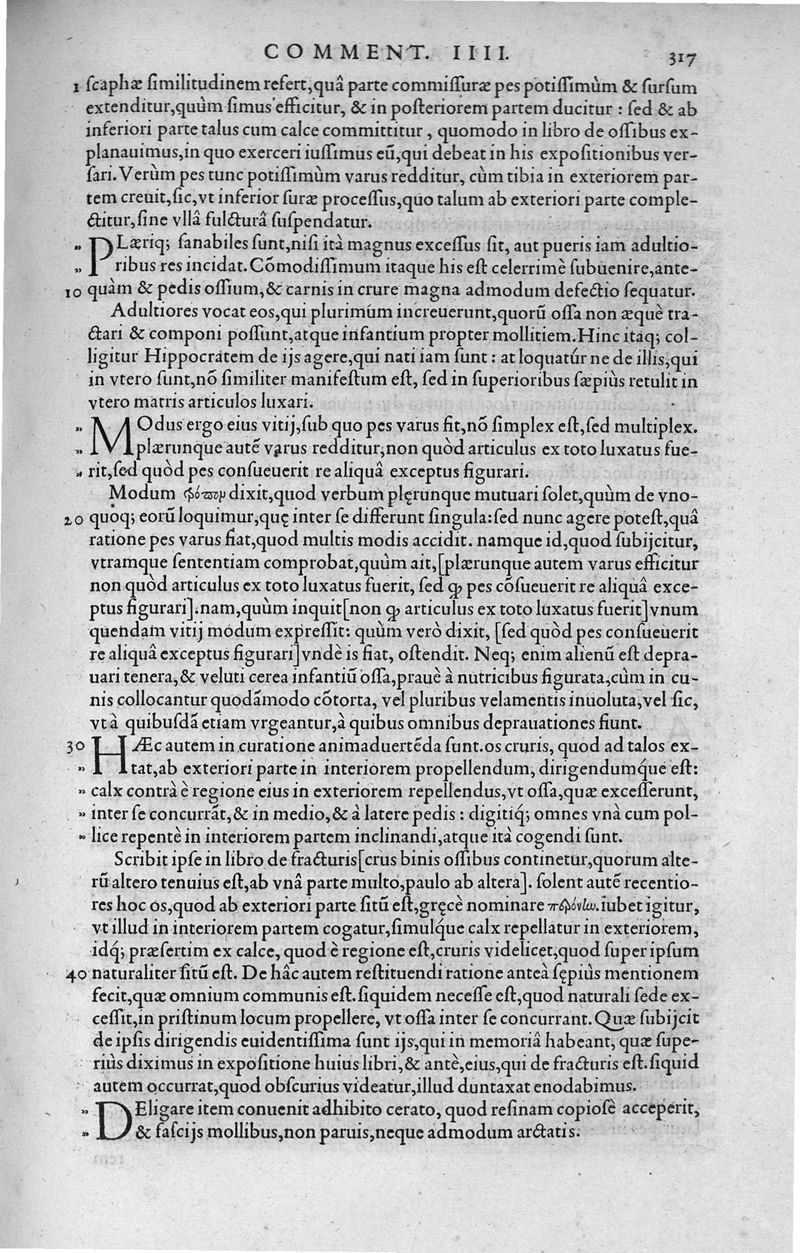 COMMENT. IIII. 317
1 ſcaphæ ſimilitudinem refert,quâ parte commiſſuræ pes potiſſimùm & ſurſum
extenditur,quùm ſimus efficitur, & in poſteriorem partem ducitur : ſed & ab
inferiori parte talus cum calce committitur, quomodo in libro de oſſibus ex-
planauimus,in quo exerceri iuſſimus eũ,qui debeat in his expoſitionibus ver-
ſari. Verùm pes tunc potiſſimùm varus redditur, cùm tibia in exteriorem par-
tem creuit,ſic,vt inferior ſuræ proceſſus,quo talum ab exteriori parte comple-
ctitur,ſine vllâ fulcturâ ſuſpendatur.
„ PLæriq; ſanabiles ſunt,niſi ità magnus exceſſus ſit, aut pueris iam adultio-
„ ribus res incidat. Cõmodiſſimum itaque his eſt celerrimè ſubuenire,ante-
10 quàm & pedis oſſium,& carnis in crure magna admodum defectio ſequatur.
Adultiores vocat eos,qui plurimùm increuerunt,quorũ oſſa non æquè tra-
ctari & componi poſſunt,atque infantium propter mollitiem. Hinc itaq; col-
ligitur Hippocratem de ijs agere,qui nati iam ſunt : at loquatúr ne de illis,qui
in vtero ſunt,nõ ſimiliter manifeſtum eſt, ſed in ſuperioribus ſæpiùs retulit in
vtero matris articulos luxari.
„ MOdus ergo eius vitij,ſub quo pes varus fit,nõ ſimplex eſt,ſed multiplex.
„ plærunque autẽ varus redditur,non quòd articulus ex toto luxatus fue-
„ rit,ſed quòd pes conſueuerit re aliquâ exceptus figurari.
Modum τρόπον dixit,quod verbum plęrunque mutuari ſolet,quùm de vno-
20 quoq; eorũ loquimur,quę inter ſe differunt ſingula:ſed nunc agere poteſt,quâ
ratione pes varus fiat,quod multis modis accidit. namque id,quod ſubijcitur,
vtramque ſententiam comprobat,quùm ait,[plærunque autem varus efficitur
non quòd articulus ex toto luxatus fuerit, ſed ꝙ pes cõſueuerit re aliquâ exce-
ptus figurari].nam,quùm inquit[non ꝙ articulus ex toto luxatus fuerit]vnum
quendam vitij modum expreſſit: quùm verò dixit, [ſed quòd pes conſueuerit
re aliquâ exceptus figurari]vndè is fiat, oſtendit. Neq; enim alienũ eſt depra-
uari tenera,& veluti cerea infantiũ oſſa,prauè à nutricibus figurata,cùm in cu-
nis collocantur quodãmodo cõtorta, vel pluribus velamentis inuoluta,vel ſic,
vt à quibuſdã etiam vrgeantur,à quibus omnibus deprauationes fiunt.
30 HÆc autem in curatione animaduertẽda ſunt.os cruris, quod ad talos ex-
„ tat,ab exteriori parte in interiorem propellendum, dirigendumq́ue eſt:
„ calx contrà è regione eius in exteriorem repellendus,vt oſſa,quæ exceſſerunt,
„ inter ſe concurrãt,& in medio,& à latere pedis : digitiq́; omnes vnà cum pol-
„ lice repentè in interiorem partem inclinandi,atque ità cogendi ſunt.
Scribit ipſe in libro de fracturis[crus binis oſſibus continetur,quorum alte-
rũ altero tenuius eſt,ab vnâ parte multo,paulo ab altera]. ſolent autẽ recentio-
res hoc os,quod ab exteriori parte ſitũ eſt,gręcè nominare περόνω. iubet igitur,
vt illud in interiorem partem cogatur,ſimulq́ue calx repellatur in exteriorem,
idq́; præſertim ex calce, quod è regione eſt,cruris videlicet,quod ſuper ipſum
40 naturaliter ſitũ eſt. De hâc autem reſtituendi ratione anteà ſępiùs mentionem
fecit,quæ omnium communis eſt. ſiquidem neceſſe eſt,quod naturali ſede ex-
ceſſit,in priſtinum locum propellere, vt oſſa inter ſe concurrant. Quæ ſubijcit
de ipſis dirigendis euidentiſſima ſunt ijs,qui in memoriâ habeant, quæ ſupe-
riùs diximus in expoſitione huius libri,& antè,eius,qui de fracturis eſt. ſiquid
autem occurrat,quod obſcurius videatur,illud duntaxat enodabimus.
„ DEligare item conuenit adhibito cerato, quod reſinam copioſè acceperit,
„ & faſcijs mollibus,non paruis,neque admodum arctatis.